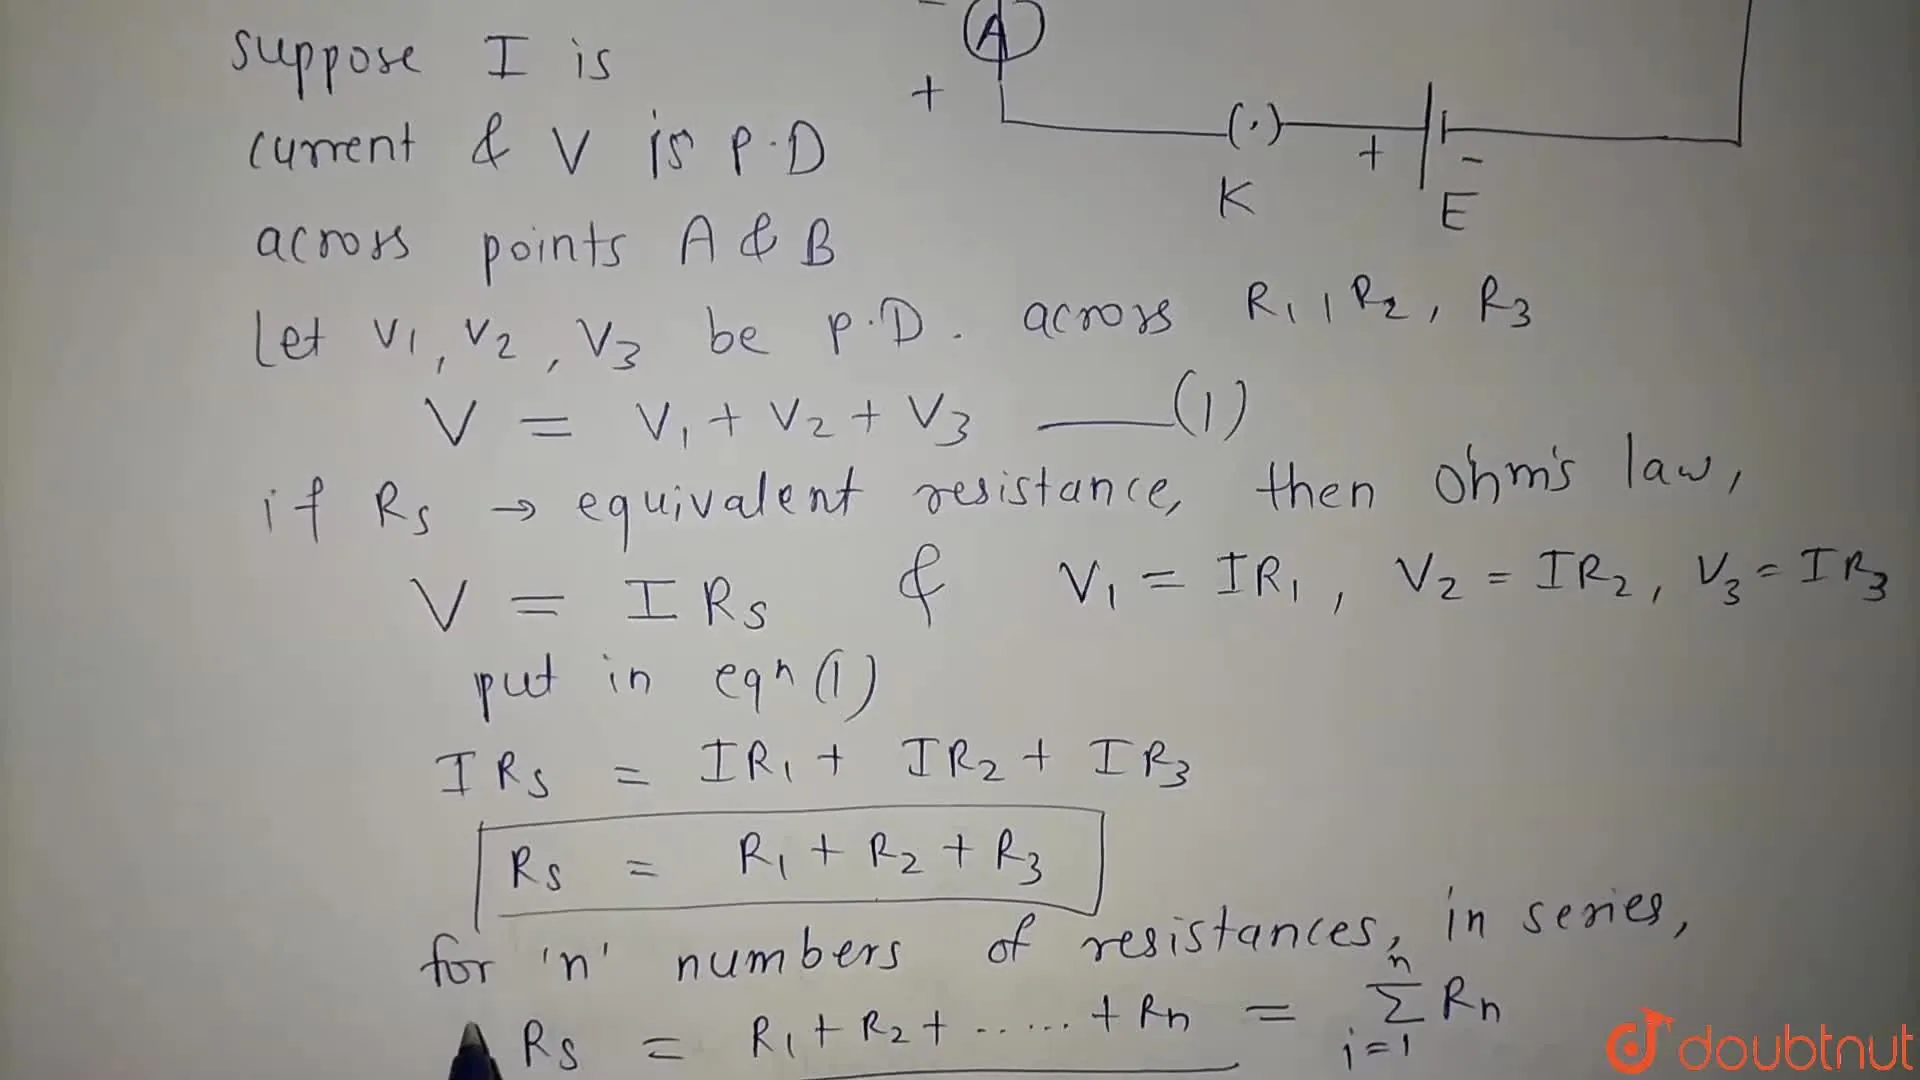 A
+
K
+
-
E
suppose I is
current & V is P.D
across points A & B
Let V1, V2, V3 be p.D. across R1, R2, R3
V = V1 + V2 + V3 ——(1)
if Rs → equivalent resistance, then ohm's law,
V = I Rs & V1 = IR1, V2 = IR2, V3 = IR3
put in eqn (1)
I Rs = IR1 + IR2 + IR3
Rs = R1 + R2 + R3
for 'n' numbers of resistances, in series,
Rs = R1 + R2 + ...... + Rn = n∑i=1 Rn
doubtnut